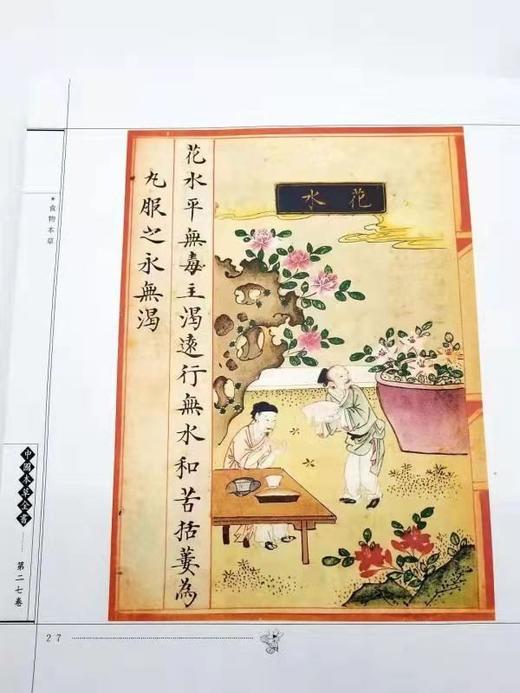 花水
花水平無毒主渴遠行無水和苦括蔞為
丸服之永無渴
食物本草
中國本草全書
第二七卷
27